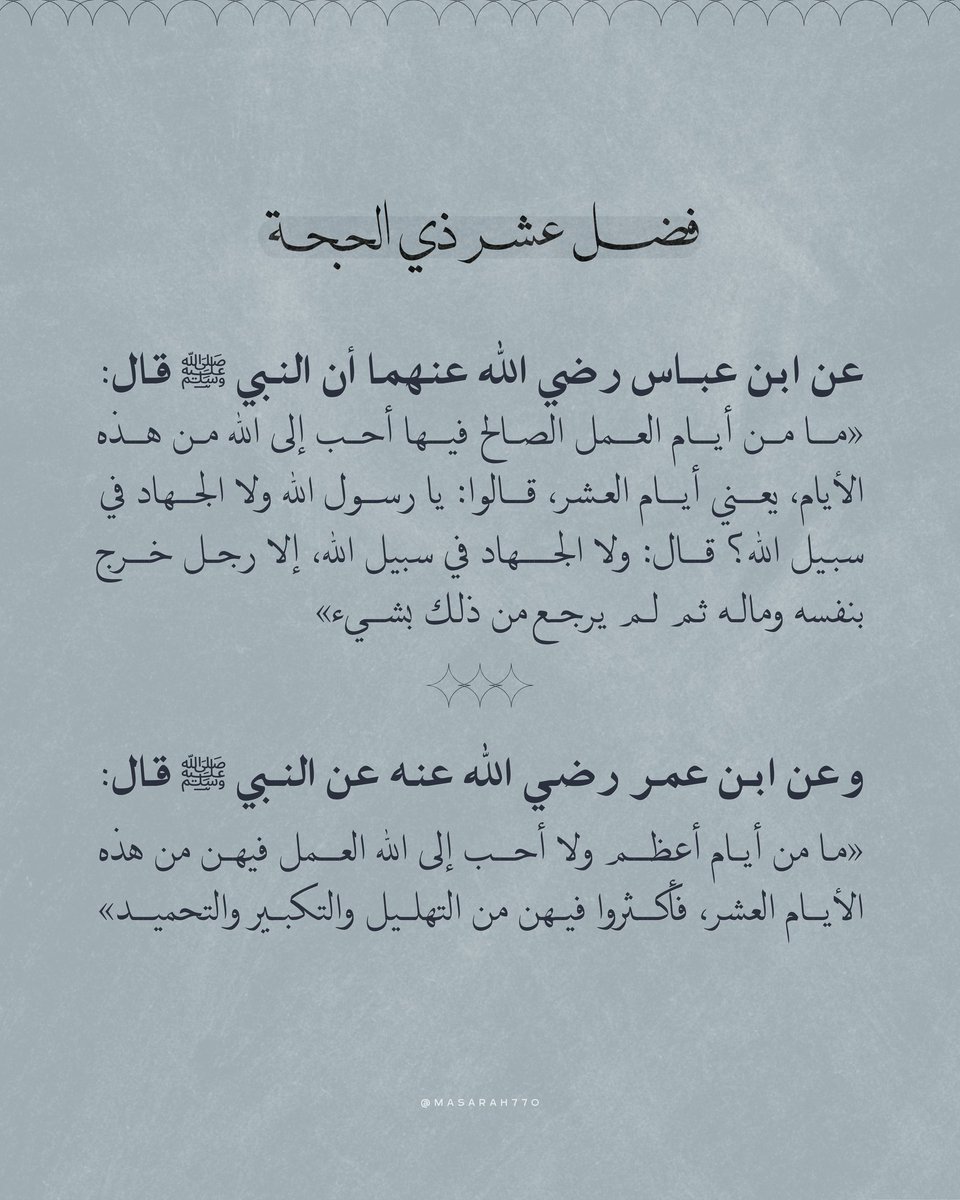 فضل عشر ذي الحجة
عن ابن عباس رضي الله عنهما أن النبي ﷺ قال:
«ما من أيام العمل الصالح فيها أحب إلى الله من هذه
الأيام، يعني أيام العشر، قالوا: يا رسول الله ولا الجهاد في
سبيل الله؟ قال: ولا الجهاد في سبيل الله، إلا رجل خرج
بنفسه وماله ثم لم يرجع من ذلك بشيء»
وعن ابن عمر رضي الله عنه عن النبي ﷺ قال:
«ما من أيام أعظم ولا أحب إلى الله العمل فيهن من هذه
الأيام العشر، فأكثروا فيهن من التهليل والتكبير والتحميد»
@MASARAH770